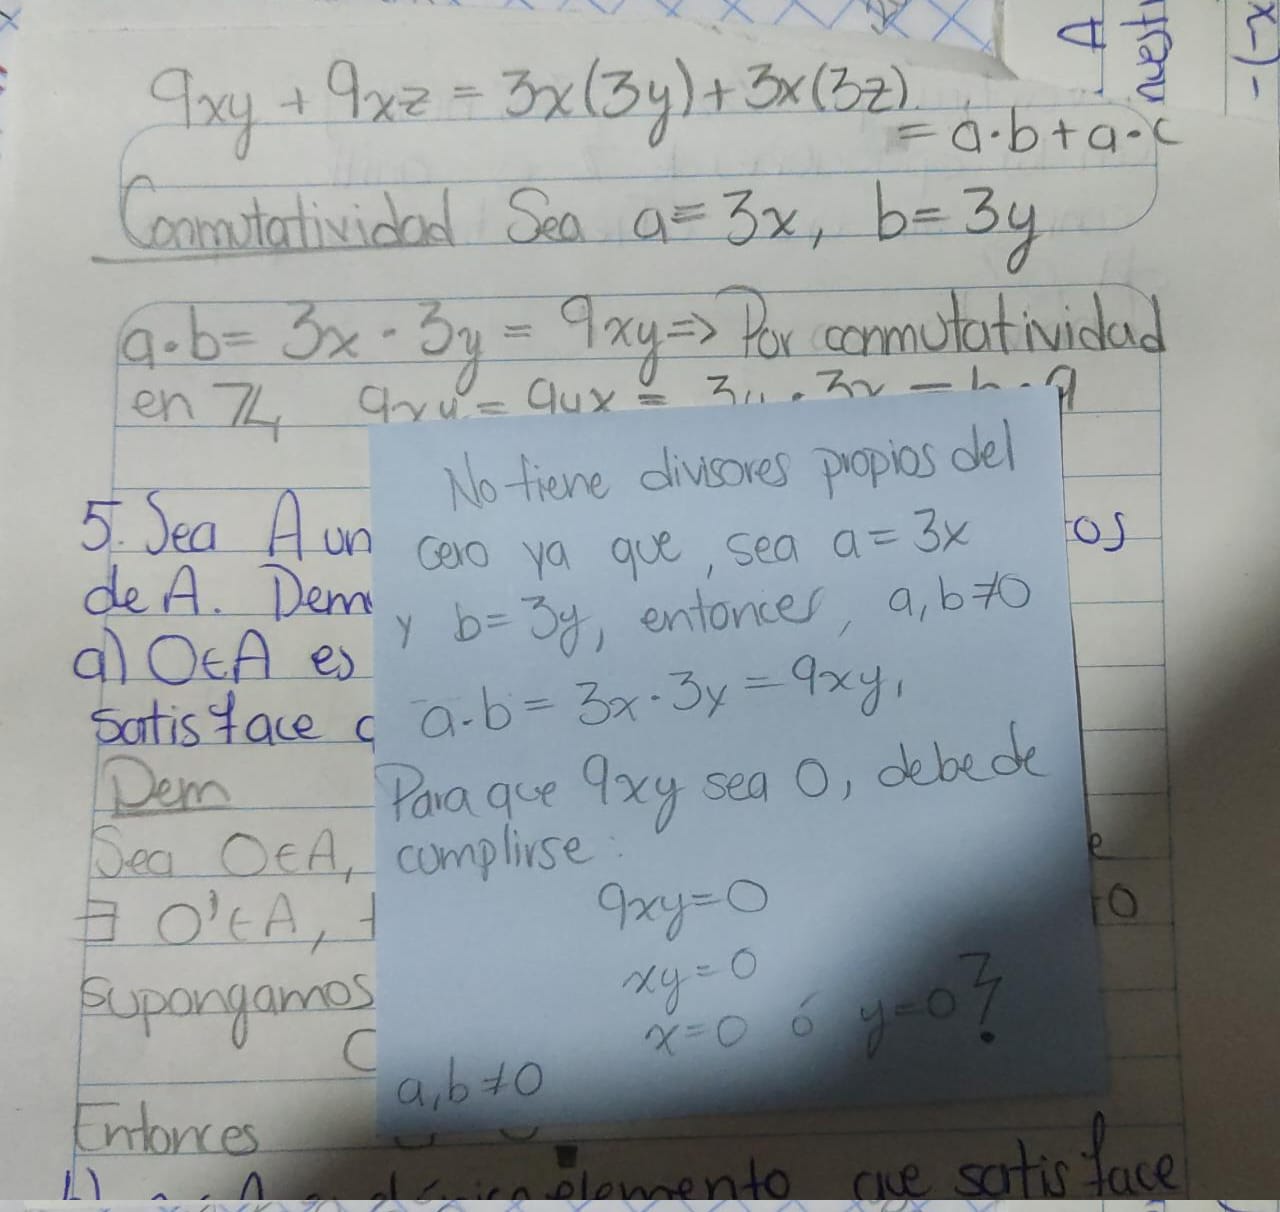 9xy + 9xz = 3x(3y) + 3x(3z)
= a·b + a·c
Conmutatividad Sea a = 3x, b = 3y
a·b = 3x · 3y = 9xy => Por conmutatividad
en ℤ, 9xy = 9yx = 3y · 3x = b · a
No tiene divisores propios del
cero ya que, sea a = 3x
y b = 3y, entonces, a, b ≠ 0
a·b = 3x · 3y = 9xy,
Para que 9xy sea 0, debe de
cumplirse:
9xy = 0
xy = 0
x = 0 ó y = 0?
a, b ≠ 0
5. Sea A un os
de A. Dem
a) 0 ∈ A es
satisface
Dem
Sea 0 ∈ A, e
∃ 0' ∈ A, 0
supongamos
Entonces
b) elemento que satisface
A
nest
- (-x